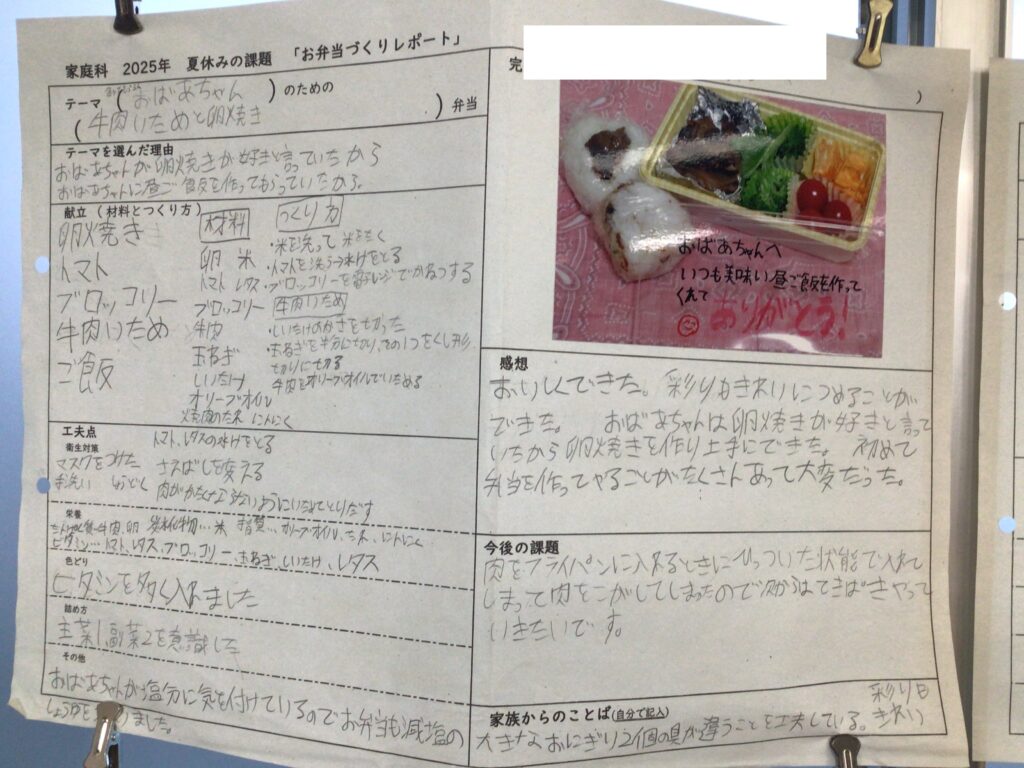 家庭科 2025年 夏休みの課題 「お弁当づくりレポート」
テーマ ( おばあちゃん ) のための
( 牛肉いためと卵焼き ) 弁当
テーマを選んだ理由
おばあちゃんが卵焼きが好きと言っていたから
おばあちゃんに昼ご飯を作ってもらっていたから。
献立 (材料とつくり方)
卵焼き
トマト
ブロッコリー
牛肉いため
ご飯
材料
卵 米
トマト レタス
ブロッコリー
牛肉
玉ねぎ
しいたけ
オリーブオイル
焼肉のたれ にんにく
つくり方
・米を洗って 米をたく
・トマトを洗う 水けをとる
・ブロッコリーを電子レンジでかねつする
牛肉いため
・しいたけのかさを切った
・玉ねぎを半分に切り、その1つをくし形
切りに切る
牛肉をオリーブオイルでいためる
工夫点
衛生対策
トマト、レタスの水けをとる
マスクをつけた さえばしを変える
手洗い しょうどく
肉がかたくならないようにいためてとりだす
栄養
たんぱく質…牛肉、卵 炭水化物…米 脂質…オリーブオイル、たれ、にんにく
ビタミン…トマト、レタス、ブロッコリー、玉ねぎ、しいたけ、レタス
色どり
ビタミンを多く入れました
詰め方
主菜1、副菜2を意識した
その他
おばあちゃんが塩分に気を付けているのでお弁当も減塩の
しょうゆを
ました。
完
)
おばあちゃんへ
いつも美味い昼ご飯を作って
くれて
ありがとう!
感想
おいしくできた。彩りがきれいにつめることが
できた。 おばあちゃんは卵焼きが好きと言って
いたから卵焼きを作り上手にできた。 初めて
弁当を作ってやることがたくさんあって大変だった。
今後の課題
肉をフライパンに入れるときにひっついた状態で入れて
しまって肉をこがしてしまったので次からはてきぱきやって
いきたいです。
家族からのことば(自分で記入)
大きなおにぎり2個の具が違うことを工夫している。
彩りも
きれい